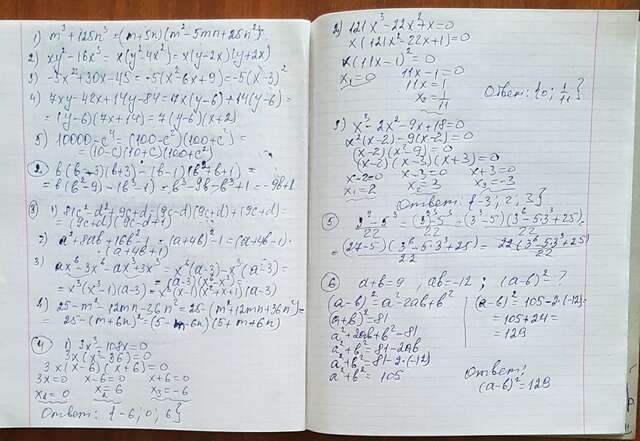 1) m³+125n³=(m+5n)(m²-5mn+25n²)
2) xy²-16x³=x(y²-4x²)=x(y-2x)(y+2x)
3) -5x²+30x-45=-5(x²-6x+9)=-5(x-3)²
4) 7xy-42x+14y-84=7x(y-6)+14(y-6)=
=(y-6)(7x+14)=7(y-6)(x+2)
5) 10000-c⁴=(100-c²)(100+c²)=
=(10-c)(10+c)(100+c²)
2. b(b-3)(b+3)-(b-1)(b²+b+1)
=b(b²-9)-(b³-1)=b³-9b-b³+1=-9b+1
3 1) 81c²-d²+9c+d=(9c-d)(9c+d)+(9c+d)=
=(9c+d)(9c-d+1)
2) a²+8ab+16b²-1=(a+4b)²-1=(a+4b-1)·
·(a+4b+1)
3) ax⁶-3x⁶-ax³+3x³=x⁶(a-3)-x³(a-3)=
=(a-3)(x⁶-x³)=
=x³(x³-1)(a-3)=x³(x-1)(x²+x+1)(a-3)
4) 25-m²-12mn-36n²=25-(m²+12mn+36n²)=
=25-(m+6n)²=(5-m-6n)(5+m+6n)
4 1) 3x³-108x=0
3x(x²-36)=0
3x(x-6)(x+6)=0
3x=0 x-6=0 x+6=0
x₁=0 x₂=6 x₃=-6
Ответ: {-6; 0; 6}
2) 121x³-22x²+x=0
x(121x²-22x+1)=0
x(11x-1)²=0
x₁=0 11x-1=0
11x=1
x₂=1/11 Ответ: {0; 1/11}
3) x³-2x²-9x+18=0
x²(x-2)-9(x-2)=0
(x-2)(x²-9)=0
(x-2)(x-3)(x+3)=0
x-2=0 x-3=0 x+3=0
x₁=2 x₂=3 x₃=-3
Ответ: {-3; 2; 3}
=(27-5)(3⁶-5·3³+25)/22=22(3⁶-5·3³+25)/22
6 a+b=9; ab=-12; (a-b)²=?
(a-b)²=a²-2ab+b² (a-b)²=105-2·(-12)=
(a+b)²=81 =105+24=
a²+2ab+b²=81 =129
a²+b²=81-2ab
a²+b²=81-2·(-12)
a²+b²=105 Ответ:
(a-b)²=129